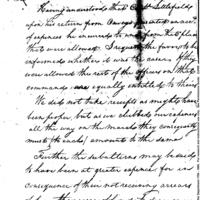 Having understood that Capt Littlefield
upon his return from Oswego presented an acct
of expences he incurred to and from that place
that were allowed. I request the favor to be
informed whether it was the case. If they
were allowed the rest of the officers on that
command are equally entitled to them
We did not take receipts as might have
been proper but as we clubed our expences
all the way on the march they consequently
must (to each) amount to the same
Further the subalterns may be said
to have been at greater expence for in
consequence of their not receiving arrears